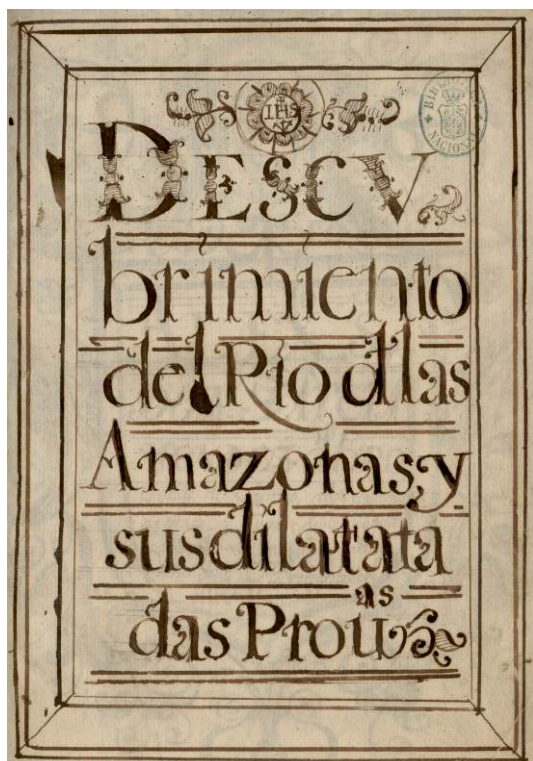 IHS
BIBLIOTECA NACIONAL
DESCV
brimiento
del Rio dllas
Amazonas, y
sus dilatata
das Prouas